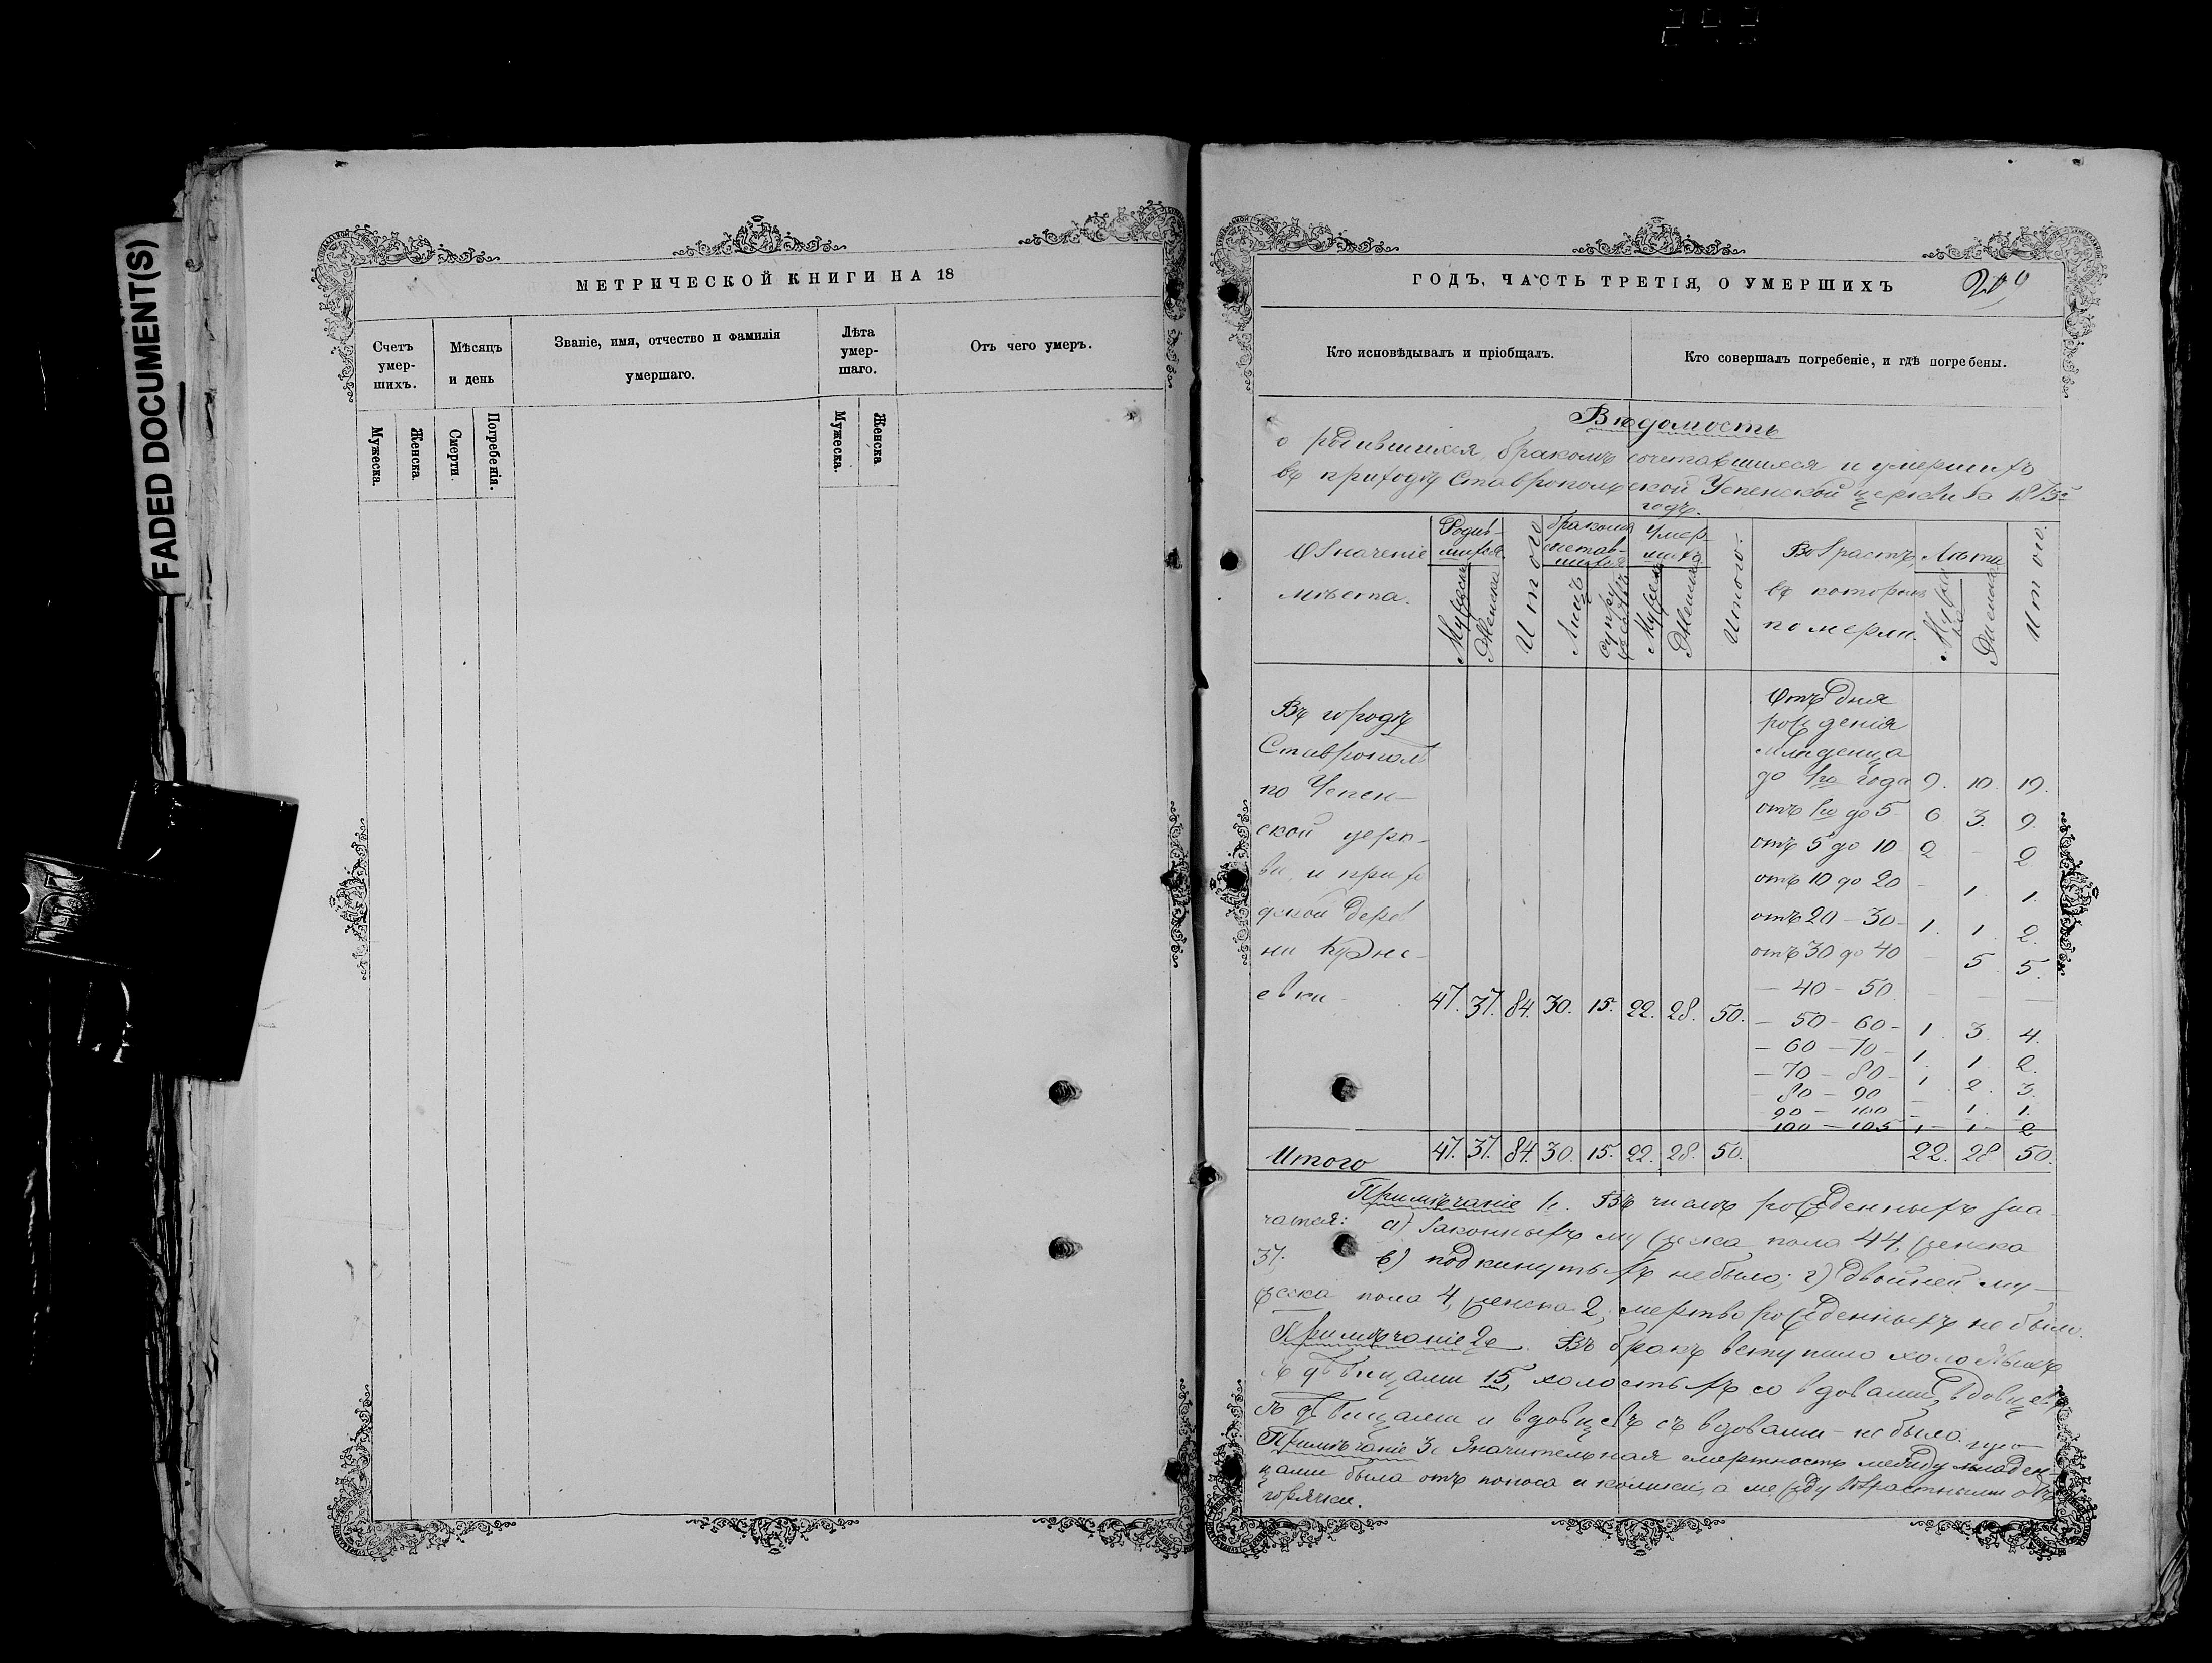 FADED DOCUMENT(S)
МЕТРИЧЕСКОЙ КНИГИ НА 18
Счетъ умер-шихъ.
Мѣсяцъ и день
Званіе, имя, отчество и фамилія умершаго.
Лѣта умер-шаго.
Отъ чего умеръ.
Мужеска.
Женска.
Смерти.
Погребенія.
Мужеска.
Женска
ГОДЪ, ЧАСТЬ ТРЕТІЯ, О УМЕРШИХЪ
Кто исповѣдывалъ и пріобщалъ.
Кто совершалъ погребеніе, и гдѣ погребены.
Вѣдомость
о родившихся, бракомъ сочетавшихся и умершихъ
въ приходѣ Ставропольской Успенской церкви за
годъ.
Означеніе мѣста.
Родив-шихся
Мужеска
Женска
Итого
бракомъ сочетав-шихся
Лицъ
супружествъ
Умер-шихъ
Мужеска
Женска
Итого.
Возрастъ, въ которомъ померли.
Лѣта
Мужеска
Женска
Итого.
Отъ дня
рожденія
младенца
до 1го года 9. 10. 19.
отъ 1го до 5 6 3. 9.
отъ 5 до 10 2 - 2
отъ 10 до 20 - 1. 1.
отъ 20 - 30 - 1. 1 2.
отъ 30 до 40 - 5 5.
- 40 - 50 - - -
- 50 - 60 - 1. 3 4.
- 60 - 70 - 1. 1 2.
- 70 - 80 - 1. 2. 3.
80 - 90 - 1. 1.
90 - 100
100 - 105 1 - 1 - 2
Въ городѣ
Ставрополѣ
по Успен-
ской церк-
ви, и прихо
дской дерев
ни
евки 47. 37. 84. 30. 15. 22. 28. 50.
Итого 47. 37. 84. 30. 15. 22. 28. 50. 22. 28 50.
Примѣчаніе 1е. Въ числѣ рожденныхъ зна-
чатся: а) законныхъ мужеска пола 44, женска
37. в) подкинутыхъ небыло; г) двойней му-
жеска пола 4, женска 2, мертворожденныхъ не было.
Примѣчаніе 2е. Въ бракъ вступило холостыхъ
съ дѣвицами 15, холостыхъ со вдовами, вдовцевъ
съ дѣвицами и вдовцевъ съ вдовами - не было.
Примѣчаніе 3е Значительная смертность между младен-
цами была отъ поноса и а между возрастными отъ
горячки.